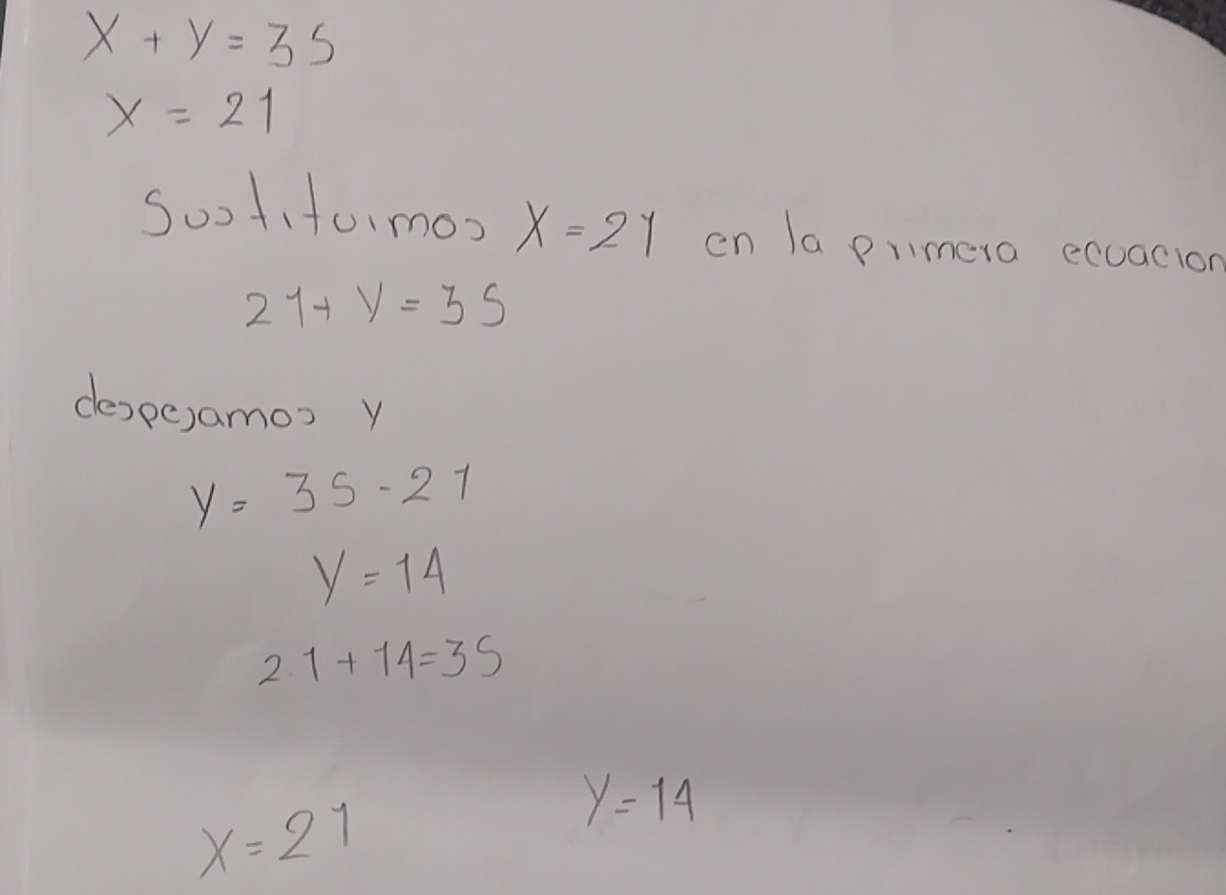 X + Y = 35
X = 21
Sustituimos X = 21 en la primera ecuacion
21 + Y = 35
despejamos y
y = 35 - 21
Y = 14
21 + 14 = 35
Y = 14
X = 21